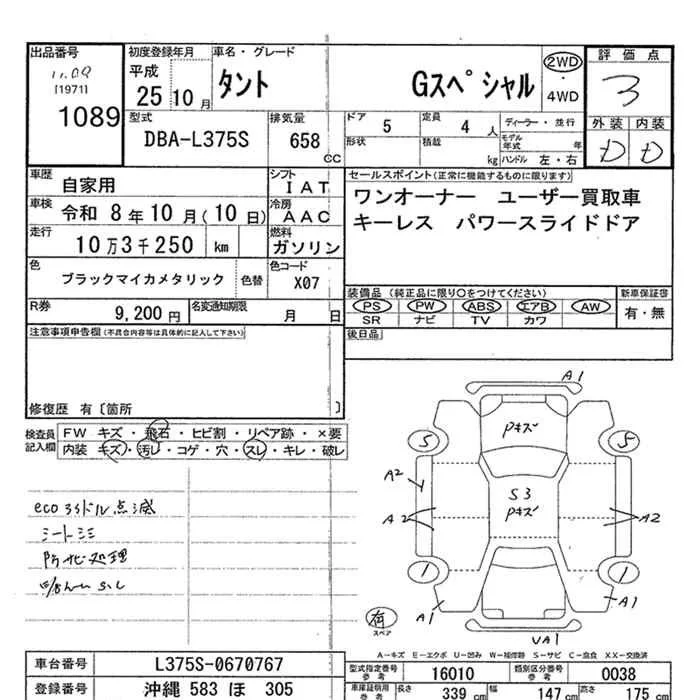 出品番号
初度登録年月
車名・グレード
評価点
11.09
[1971]
1089
平成
25 10 月
タント
Gスペシャル
2WD
・
4WD
3
外装 内装
D D
型式
DBA-L375S
排気量
658
cc
ドア 5
定員 4 人
ディーラー・並行
形状
積載 kg
モデル年式 年
ハンドル 左・右
車歴
自家用
シフト
IAT
セールスポイント(正常に機能するものに限ります)
ワンオーナー ユーザー買取車
キーレス パワースライドドア
車検
令和 8年10月(10日)
冷房
AAC
走行
10万3千250 km
燃料
ガソリン
色
ブラックマイカメタリック
色替
色コード
X07
装備品 (純正品に限り○をつけてください)
新車保証書
PS PW ABS エアB AW
SR ナビ TV カワ
有・無
R券
9,200 円
名変通知期限
月 日
後日品
注意事項申告欄(不具合内容等は具体的に記入して下さい)
修復歴 有〔箇所 〕
検査員
記入欄
FW キズ・飛石・ヒビ割・リペア跡・×要
内装 キズ・汚レ・コゲ・穴・スレ・キレ・破レ
シートシミ
防さび処理
A1
Pキズ
S S
A2
S3
Pキズ
A2 A2
1 1
A1 A1
有
スペア
UA1
A-キズ E-エクボ U-凹み W-補修跡 S-サビ C-腐食 XX-交換済
車台番号
L375S-0670767
型式指定番号
参考
16010
類別区分番号
参考
0038
登録番号
沖縄 583 ほ 305
車庫証明用
参考
長さ 339 cm
幅 147 cm
高さ 175 cm